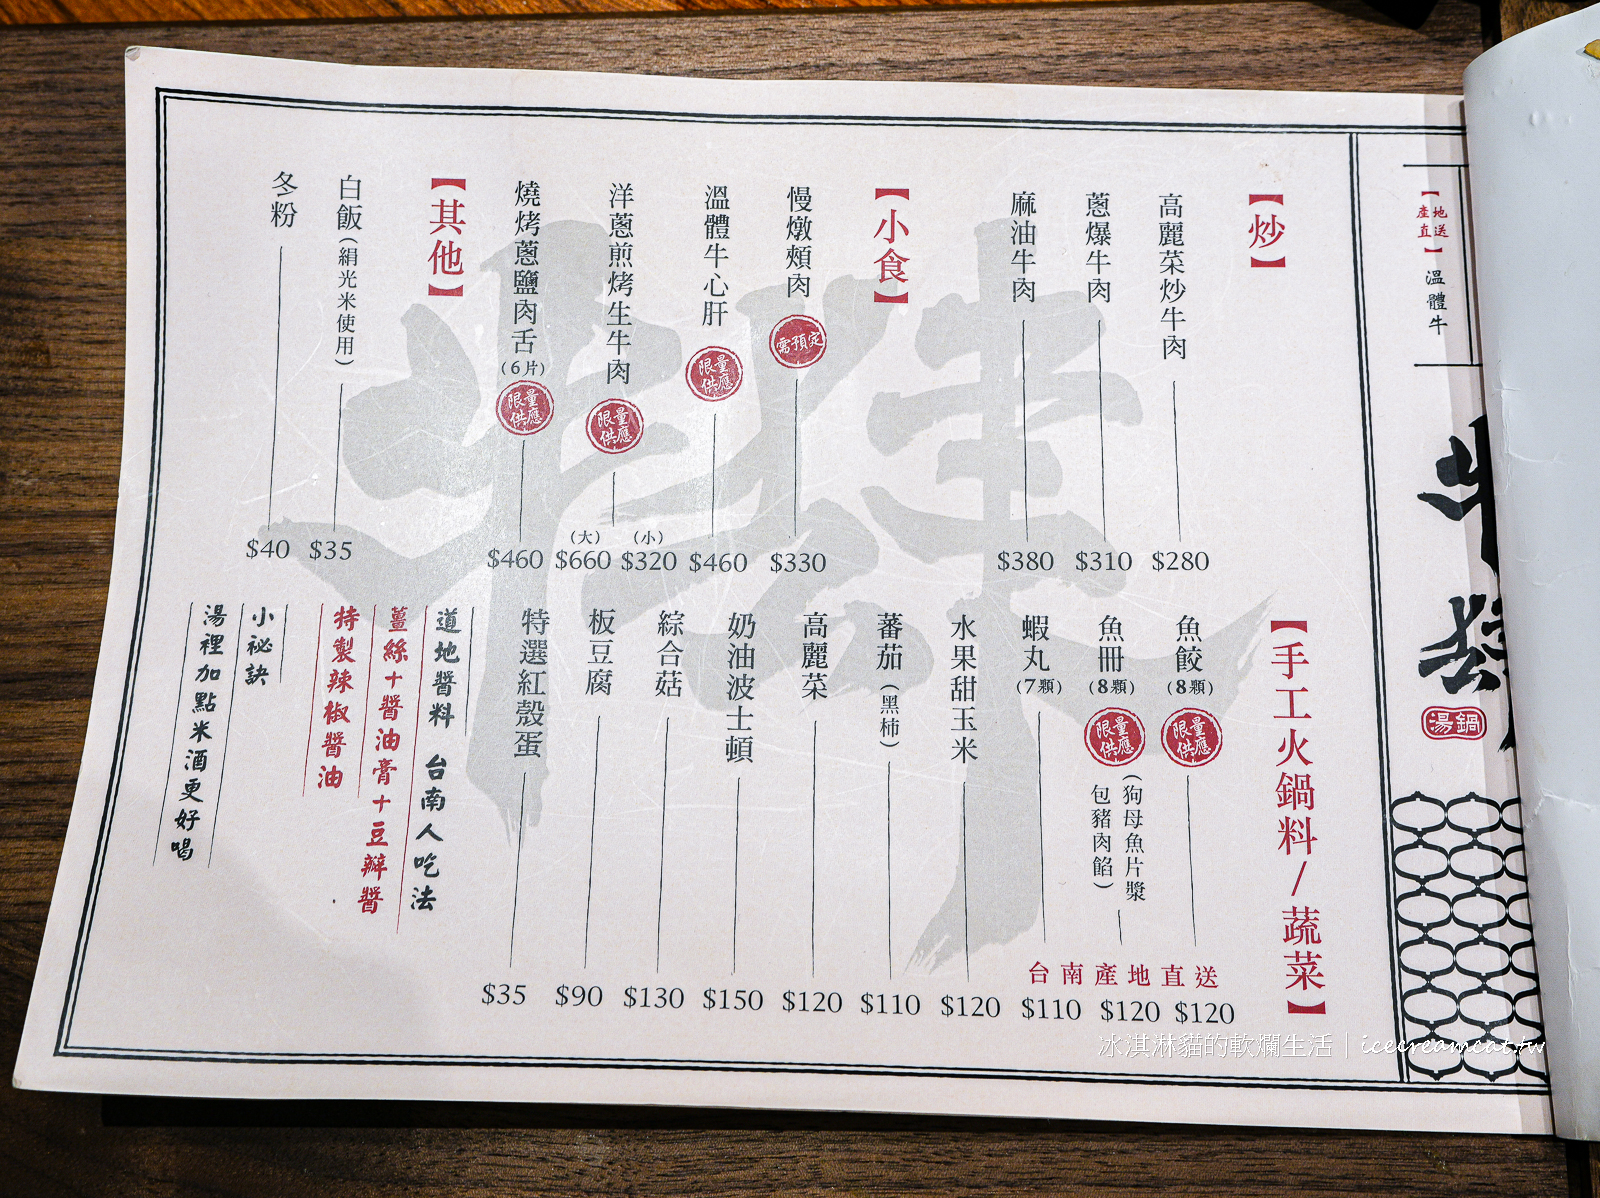 【產地直送】
溫體牛
湯鍋
【炒】
高麗菜炒牛肉 $280
蔥爆牛肉 $310
麻油牛肉 $380
【小食】
慢燉頰肉 需預定 $330
溫體牛心肝 限量供應 $460
洋蔥煎烤生牛肉 限量供應 (小) $320 (大) $660
燒烤蔥鹽肉舌 (6片) 限量供應 $460
【其他】
白飯(絹光米使用) $35
冬粉 $40
【手工火鍋料/蔬菜】
魚餃 (8顆) 限量供應 $120
魚冊 (8顆) 限量供應 (狗母魚片漿包豬肉餡) $120
蝦丸 (7顆) $110
台南產地直送
水果甜玉米 $120
蕃茄(黑柿) $110
高麗菜 $120
奶油波士頓 $150
綜合菇 $130
板豆腐 $90
特選紅殼蛋 $35
道地醬料 台南人吃法
薑絲+醬油膏+豆瓣醬
特製辣椒醬油
小祕訣
湯裡加點米酒更好喝
冰淇淋貓的軟爛生活｜icecreamcat.tw